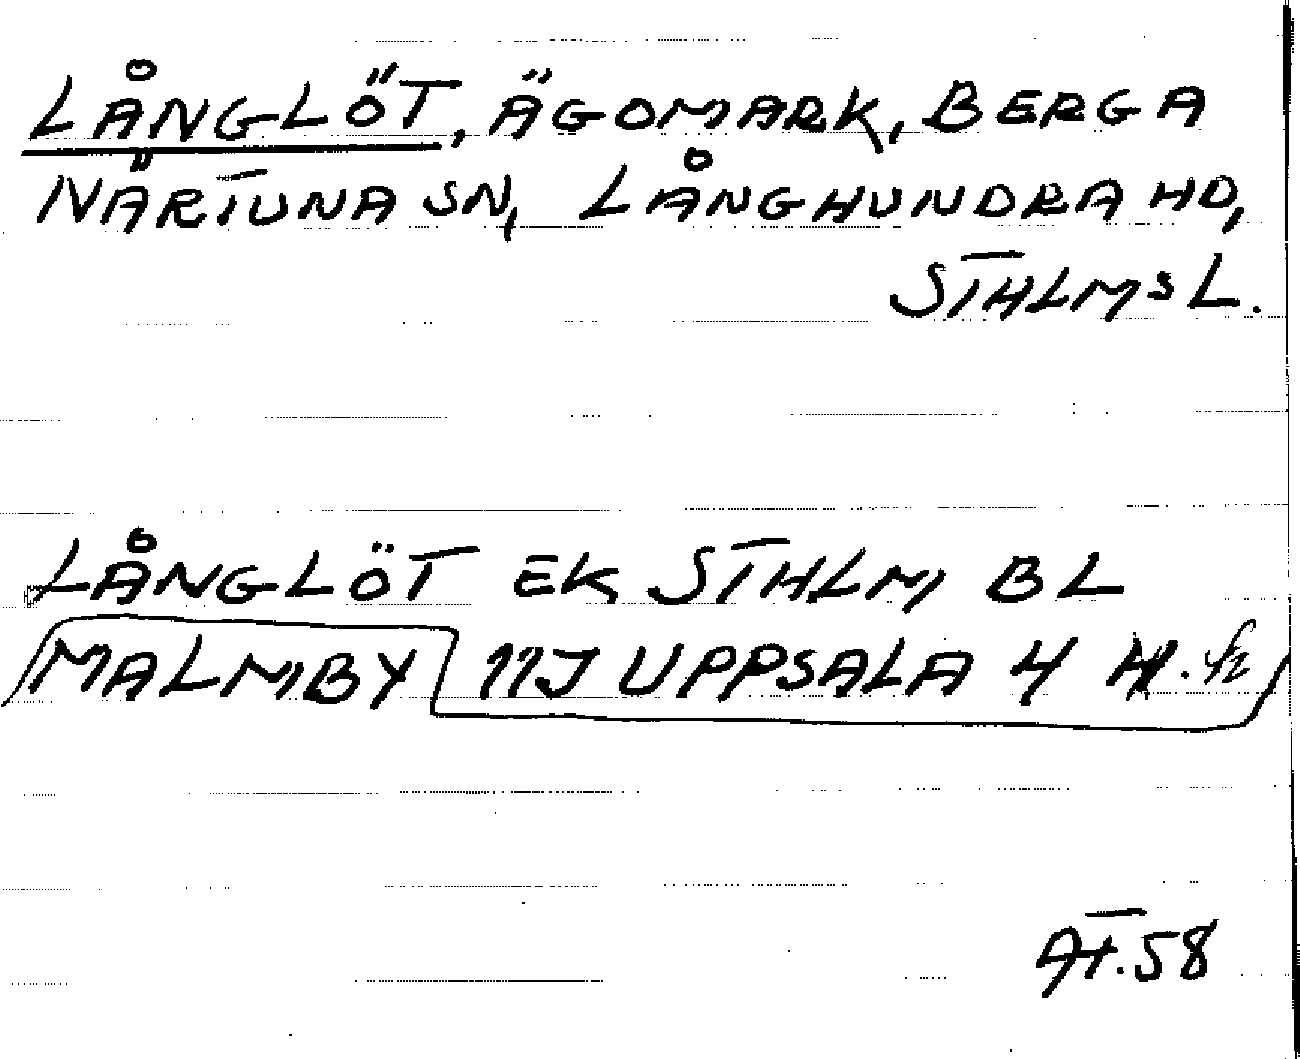 LÅNGLÖT, ÄGOMARK, BERGA
NÄRTUNA SN, LÅNGHUNDRA HD,
STHLMS L.
LÅNGLÖT EK STHLM BL
MALMBY 11J UPPSALA 4 H.
AT.58